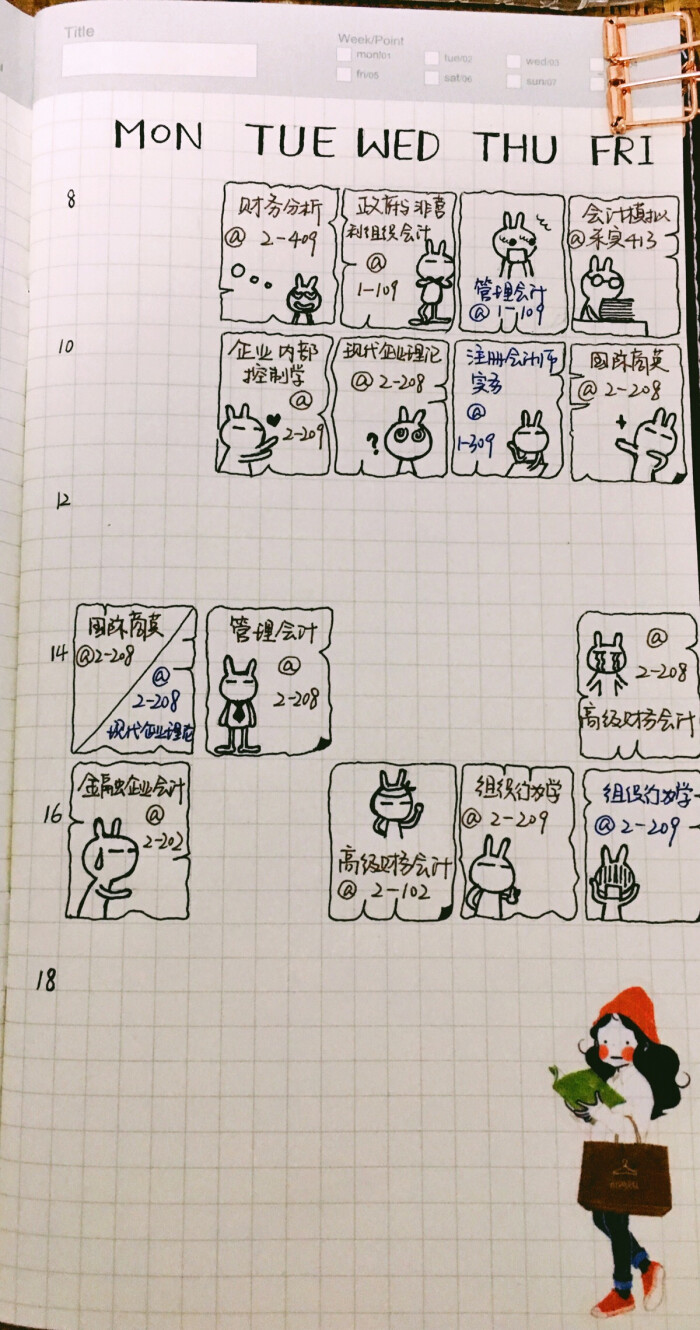 Title
Week/Point
mon/01
tue/02
wed/03
fri/05
sat/06
sun/07
MON TUE WED THU FRI
8
财务分析
@ 2-409
政府与非营
利组织会计
@
1-109
管理会计
@ 1-109
会计模拟
@禾实413
10
企业内部
控制学
@
2-209
现代企业理论
@ 2-208
?
注册会计师
实务
@
1-309
国际商英
@ 2-208
12
14
国际商英
@2-208
@
2-208
现代企业理论
管理会计
@
2-208
@
2-208
高级财务会计
16
金融企业会计
@
2-202
高级财务会计
@ 2-102
组织行为学
@ 2-209
组织行为学
@ 2-209
18